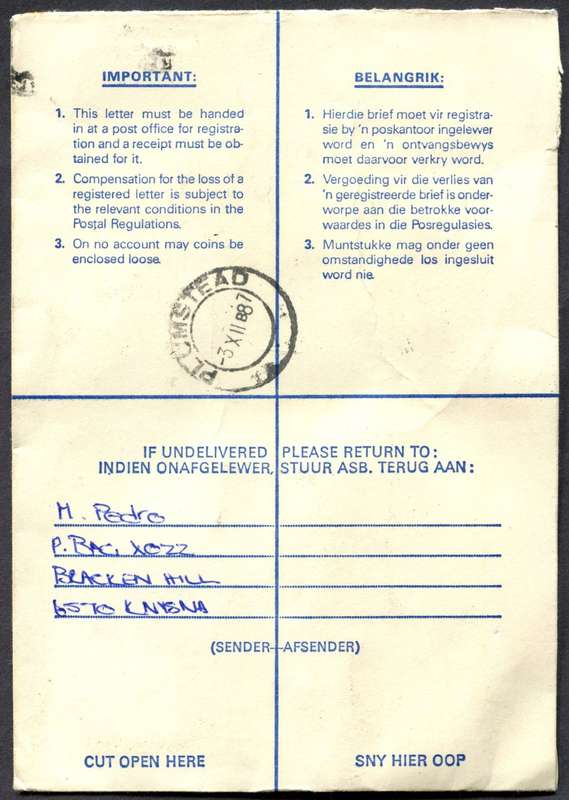 IMPORTANT:
1. This letter must be handed
in at a post office for registra-
tion and a receipt must be ob-
tained for it.
2. Compensation for the loss of a
registered letter is subject to
the relevant conditions in the
Postal Regulations.
3. On no account may coins be
enclosed loose.
BELANGRIK:
1. Hierdie brief moet vir registra-
sie by 'n poskantoor ingelewer
word en 'n ontvangsbewys
moet daarvoor verkry word.
2. Vergoeding vir die verlies van
'n geregistreerde brief is onder-
worpe aan die betrokke voor-
waardes in die Posregulasies.
3. Muntstukke mag onder geen
omstandighede los ingesluit
word nie.
PLUMSTEAD
-3 XII 87
IF UNDELIVERED PLEASE RETURN TO:
INDIEN ONAFGELEWER, STUUR ASB. TERUG AAN:
M. Pedro
P. BAG X022
BRACKEN HILL
6570 KNYSNA
(SENDER—AFSENDER)
CUT OPEN HERE
SNY HIER OOP